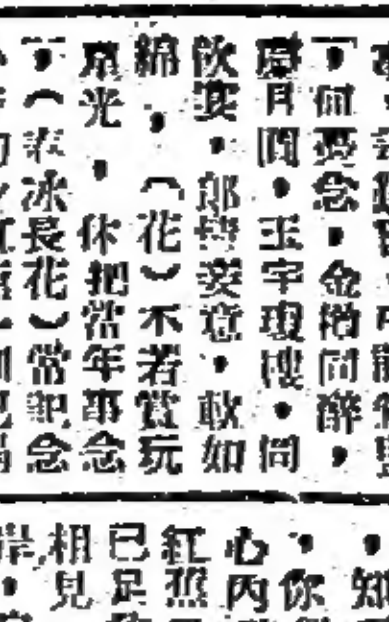 ，何念，金樽同醉，
月圓，玉宇瓊樓，同
飲宴，郎情妾意，軟如
綿，（花）不若賞玩
光，休把當年事念
，（表冰長花）常記念
，知
，你
心內
紅照
已足
相見
岸，